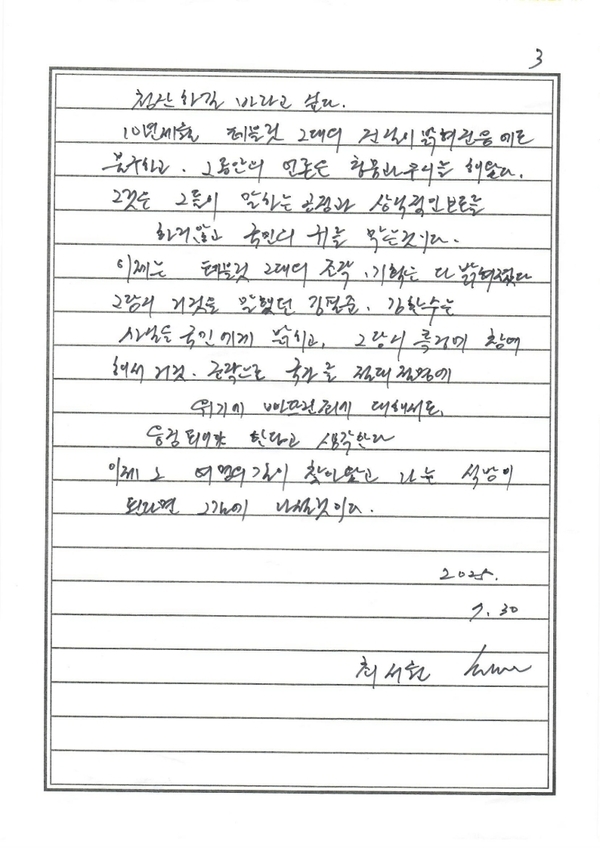 3
청산하길 바라고 싶다.
10년세월 테블릿 2대의 진실이 밝혀졌음에도
불구하고, 그동안의 언론은 침묵과 무시를 해왔다.
그것은 그들이 말하는 공정과 상식적인 보도를
하지않고 국민의 귀를 막는것이다.
이제는 테블릿 2대의 조작, 기획은 다 밝혀졌다
그당시 거짓을 말했던 김필준, 김한수는
사실을 국민에게 밝히고, 그당시 특검에 참여
해서 거짓, 조작으로 국가를 절대절명에
위기에 빠뜨린죄에 대해서도,
응징되어야 한다고 생각한다
이제 그 여명의 길이 찾아왔고 나는 석방이
된다면 그길에 나설것이다.
2025.
7. 30
최서원